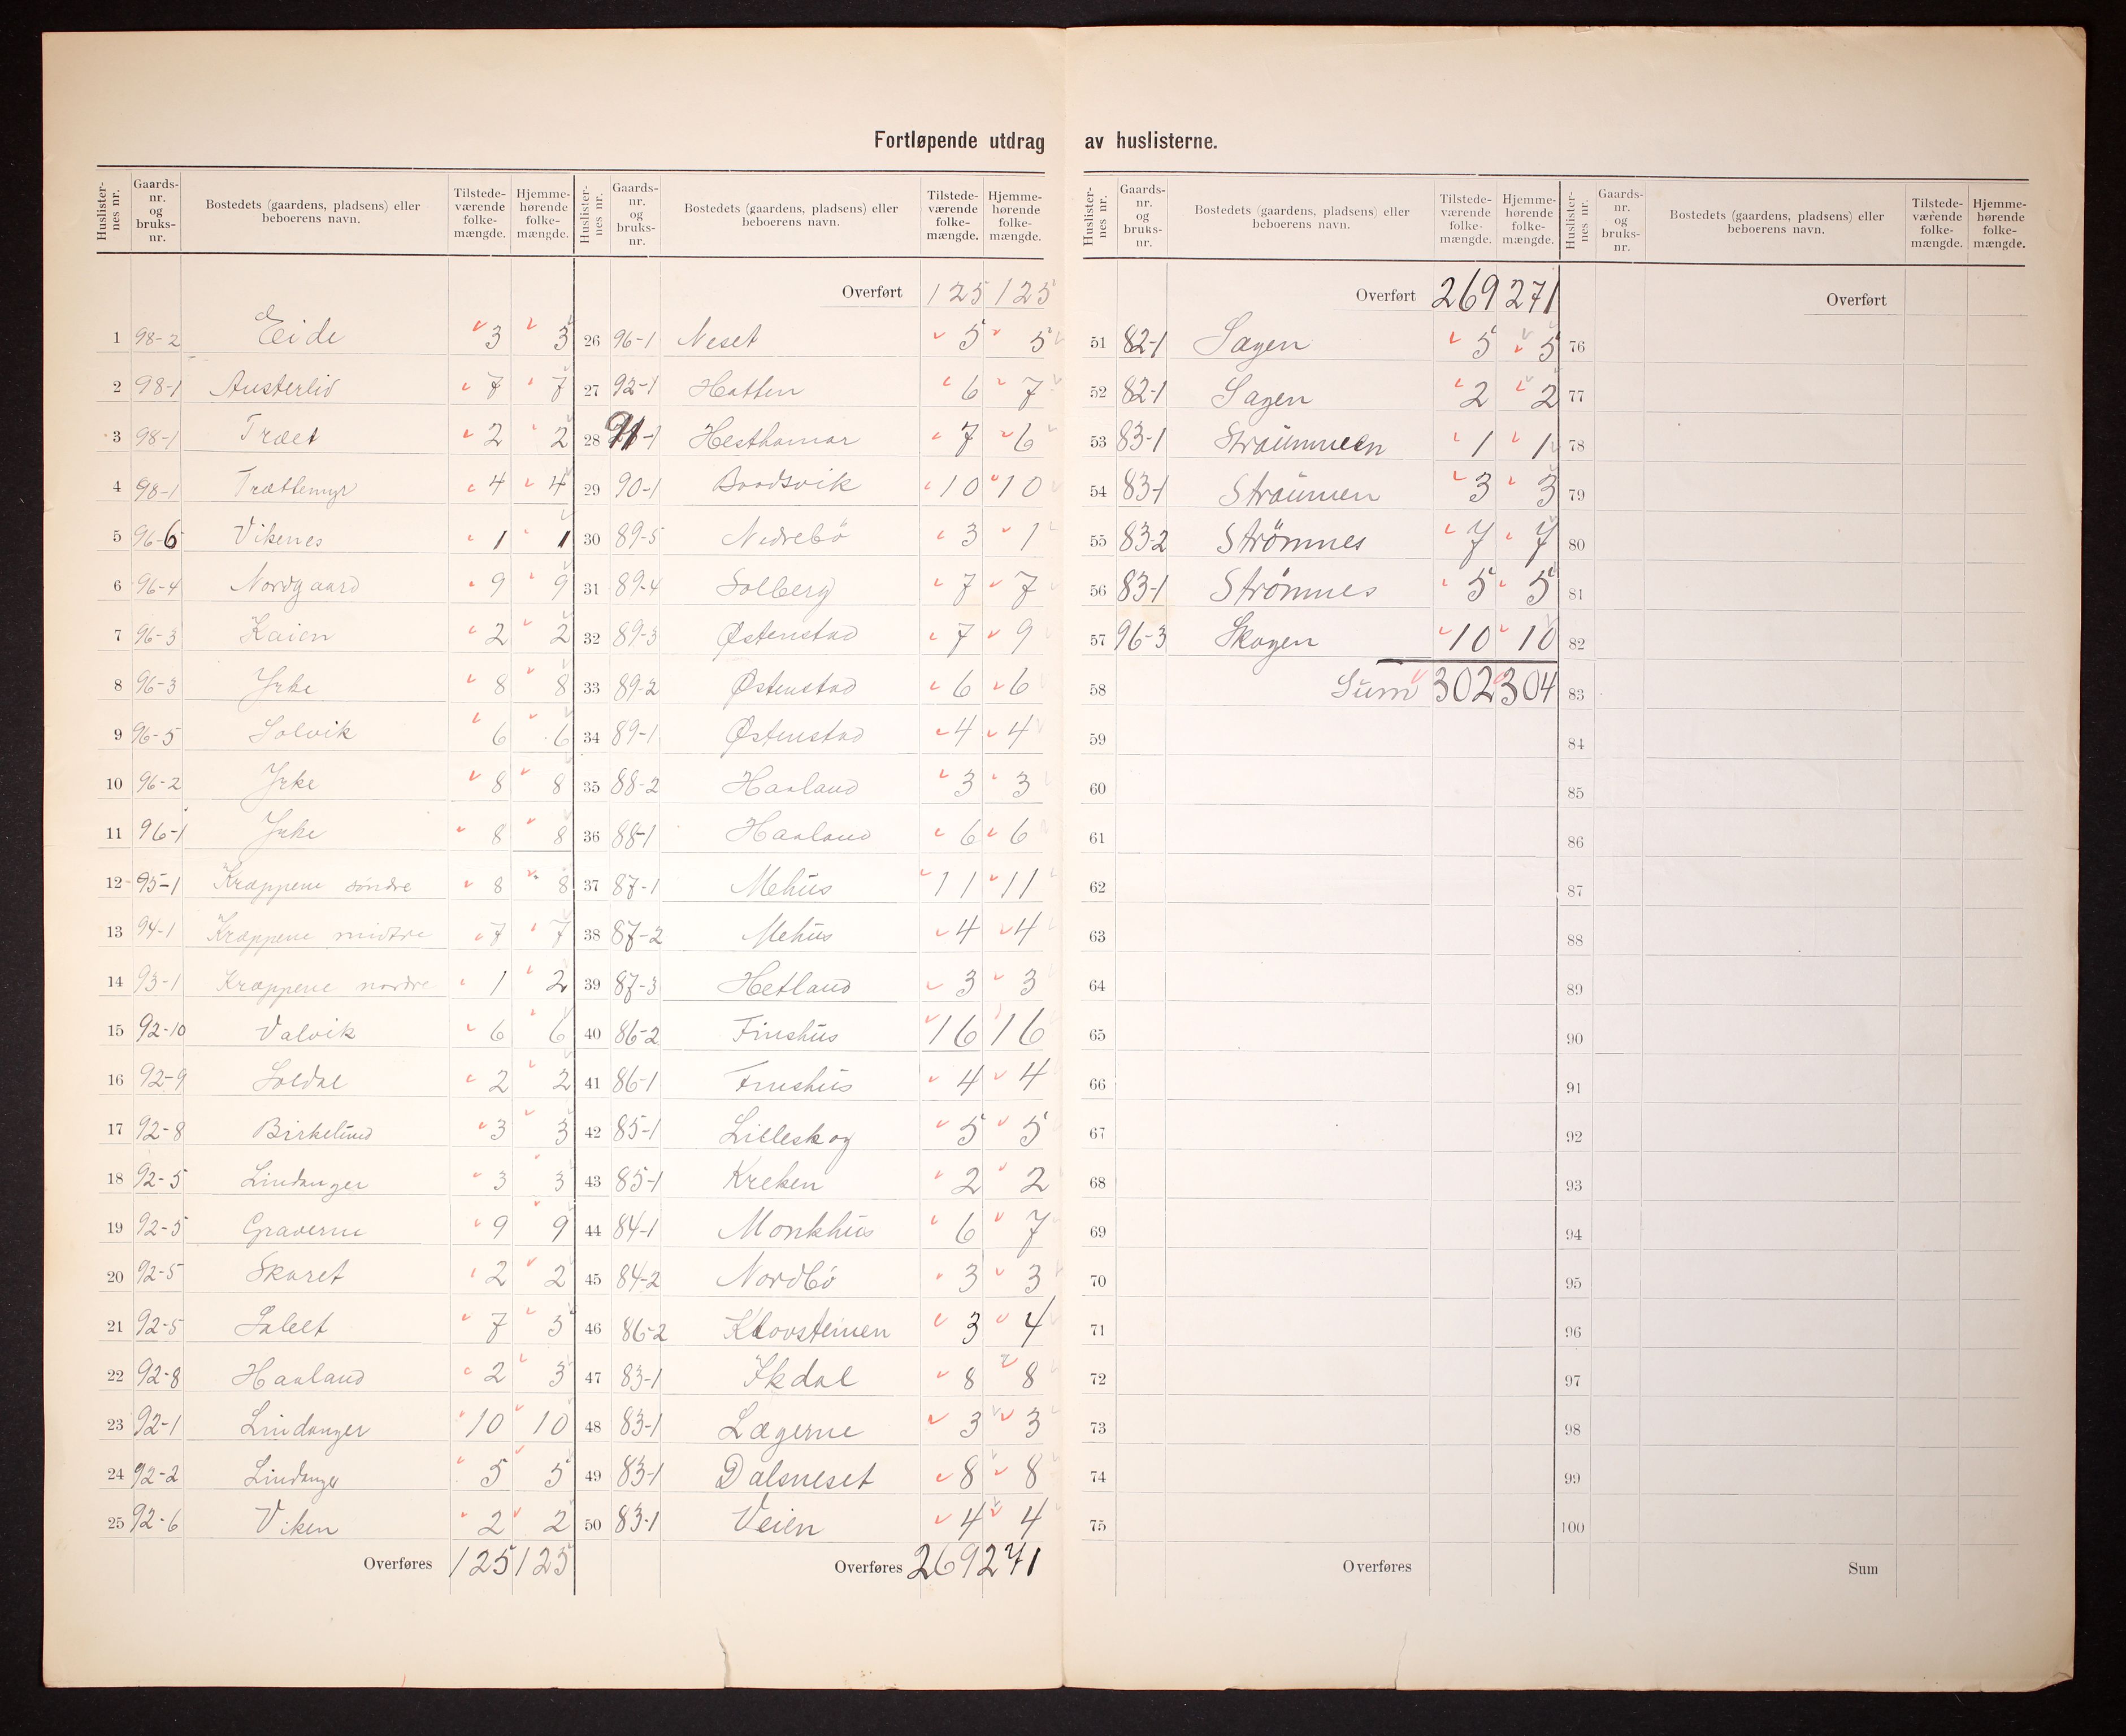 Fortløpende utdrag av huslisterne.
Huslister-nes nr. Gaards-nr. og bruks-nr. Bostedets (gaardens, pladsens) eller beboerens navn. Tilstede-værende folke-mængde. Hjemme-hørende folke-mængde.
1 98-2 Eide 3 3
2 98-1 Austerlid 7 7
3 98-1 Træet 2 2
4 98-1 Trættemyr 4 4
5 96-6 Vikenes 1 1
6 96-4 Nordgaard 9 9
7 96-3 Kaien 2 2
8 96-3 Yrke 8 8
9 96-5 Solvik 6 6
10 96-2 Yrke 8 8
11 96-1 Yrke 8 8
12 95-1 Kræppene søndre 8 8
13 94-1 Kræppene midtre 7 7
14 93-1 Kræppene nordre 1 2
15 92-10 Valvik 6 6
16 92-9 Soldal 2 2
17 92-8 Birkelund 3 3
18 92-5 Lindanger 3 3
19 92-5 Graverne 9 9
20 92-5 Skaret 2 2
21 92-5 7 5
22 92-8 Haaland 2 3
23 92-1 Lindanger 10 10
24 92-2 Lindanger 5 5
25 92-6 Viken 2 2
Overføres 125 125
Huslister-nes nr. Gaards-nr. og bruks-nr. Bostedets (gaardens, pladsens) eller beboerens navn. Tilstede-værende folke-mængde. Hjemme-hørende folke-mængde.
Overført 125 125
26 96-1 Neset 5 5
27 92-1 Hatten 6 7
28 91-1 Hesthamar 7 6
29 90-1 Baadsvik 10 10
30 89-5 Nedrebö 3 1
31 89-4 Solberg 7 7
32 89-3 Østenstad 7 9
33 89-2 Østenstad 6 6
34 89-1 Østenstad 4 4
35 88-2 Haaland 3 3
36 88-1 Haaland 6 6
37 87-1 Mehus 11 11
38 87-2 Mehus 4 4
39 87-3 Hetland 3 3
40 86-2 Finshus 16 16
41 86-1 Finshus 4 4
42 85-1 Lilleskog 5 5
43 85-1 Kreken 2 2
44 84-1 Monkhus 6 7
45 84-2 Nordbö 3 3
46 86-2 Klovsteinen 3 4
47 83-1 Ikdal 8 8
48 83-1 Lægerne 3 3
49 83-1 Dalsneset 8 8
50 83-1 Veien 4 4
Overføres 269 271
Huslister-nes nr. Gaards-nr. og bruks-nr. Bostedets (gaardens, pladsens) eller beboerens navn. Tilstede-værende folke-mængde. Hjemme-hørende folke-mængde.
Overført 269 271
51 82-1 Sagen 5 5
52 82-1 Sagen 2 2
53 83-1 Straummeen 1 1
54 83-1 Straumen 3 3
55 83-2 Strömnes 7 7
56 83-1 Strömnes 5 5
57 96-3 Skogen 10 10
58 Sum 302 304
59
60
61
62
63
64
65
66
67
68
69
70
71
72
73
74
75
Overføres
Huslister-nes nr. Gaards-nr. og bruks-nr. Bostedets (gaardens, pladsens) eller beboerens navn. Tilstede-værende folke-mængde. Hjemme-hørende folke-mængde.
Overført
76
77
78
79
80
81
82
83
84
85
86
87
88
89
90
91
92
93
94
95
96
97
98
99
100
Sum